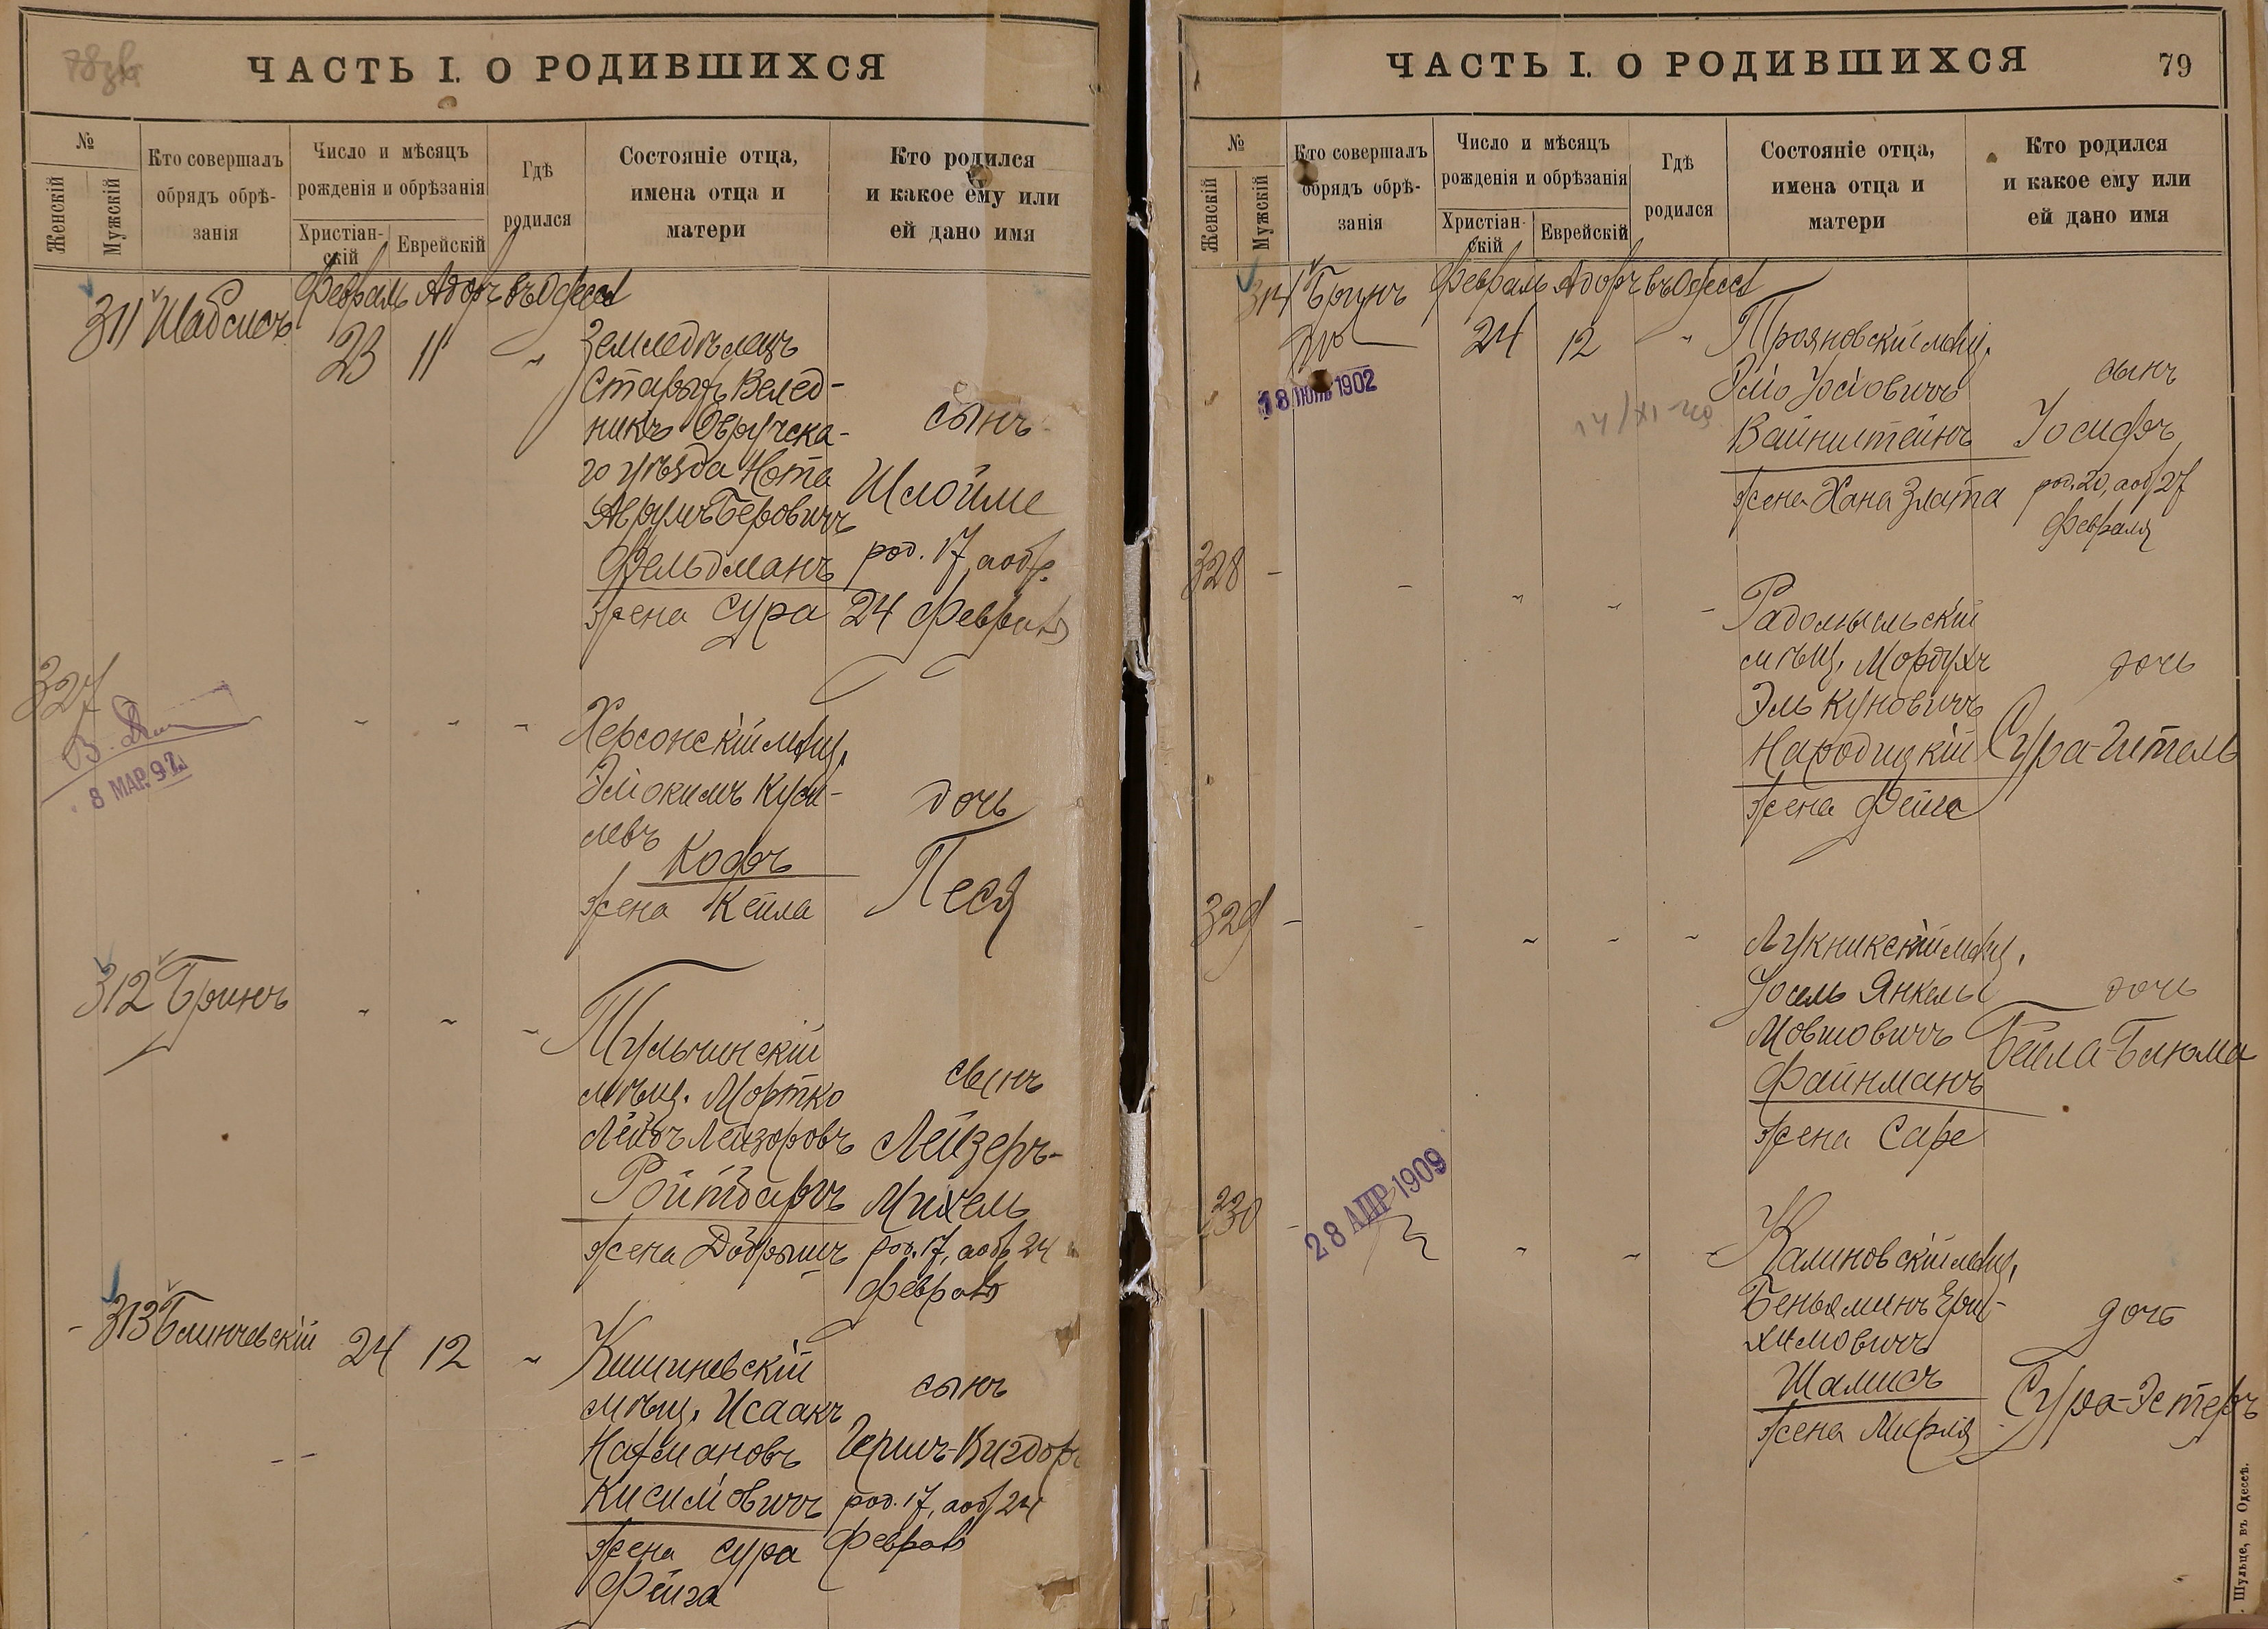 ЧАСТЬ I. О РОДИВШИХСЯ
№
Женскій
Мужскій
Кто совершалъ
обрядъ обрѣ-
занія
Число и мѣсяцъ
рожденія и обрѣзанія
Христіан-
скій
Еврейскій
Гдѣ
родился
Состояніе отца,
имена отца и
матери
Кто родился
и какое ему или
ей дано имя
311 Шабсисъ Февраль Адоръ въ Одессѣ
23 11 "
Земледѣлецъ
Старыхъ Велед-
никъ Овручска-
го уѣзда Нота
Аврумъ Беровичъ
Фельдманъ
жена Сура
сынъ
Шлойме
род. 17, а обр.
24 Февраля
327
8 МАР. 97
Херсонскій мѣщ.
Эліокимъ Куси-
левъ
Кофъ
жена Кейла
дочь
Песя
312 Бринъ
Тульчинскій
мѣщ. Мортко
Лейбъ Лейзоровъ
Ройтбаръ
жена Добрышъ
сынъ
Лейзеръ-
Михель
род. 17, а обр 24
Февраля
313 Блинчевскій 24 12 "
Кишиневскій
мѣщ. Исаакъ
Нахмановъ
Кисиліовичъ
жена Сура
Фейга
сынъ
Герш-Вигдоръ
род. 17, а обр 24
Февраля
ЧАСТЬ I. О РОДИВШИХСЯ
79
№
Женскій
Мужскій
Кто совершалъ
обрядъ обрѣ-
занія
Число и мѣсяцъ
рожденія и обрѣзанія
Христіан-
скій
Еврейскій
Гдѣ
родился
Состояніе отца,
имена отца и
матери
Кто родился
и какое ему или
ей дано имя
314 Бринъ Февраль Адоръ въ Одессѣ
24 12 "
1902
Трояновскій мѣщ.
Эліо Іосіовичъ
Вайнштейнъ
жена Хана Злата
сынъ
Іосифъ
род. 20, а обр 27
Февраля
328
Радомысльскій
мѣщ. Мордухъ
Элькуновичъ
Народицкій
жена Фейга
дочь
Сура-Гитель
329
Лукникскій мѣщ.
Іосель Янкель
Мовшовичъ
Файнманъ
жена Саре
дочь
Бейла-Блюма
330
28 АПР 1909
Калиновскій мѣщ.
Беньяминъ Ерu-
химовичъ
Шамисъ
жена Мирля
дочь
Сура-Эстеръ
Шульце, въ Одессѣ.